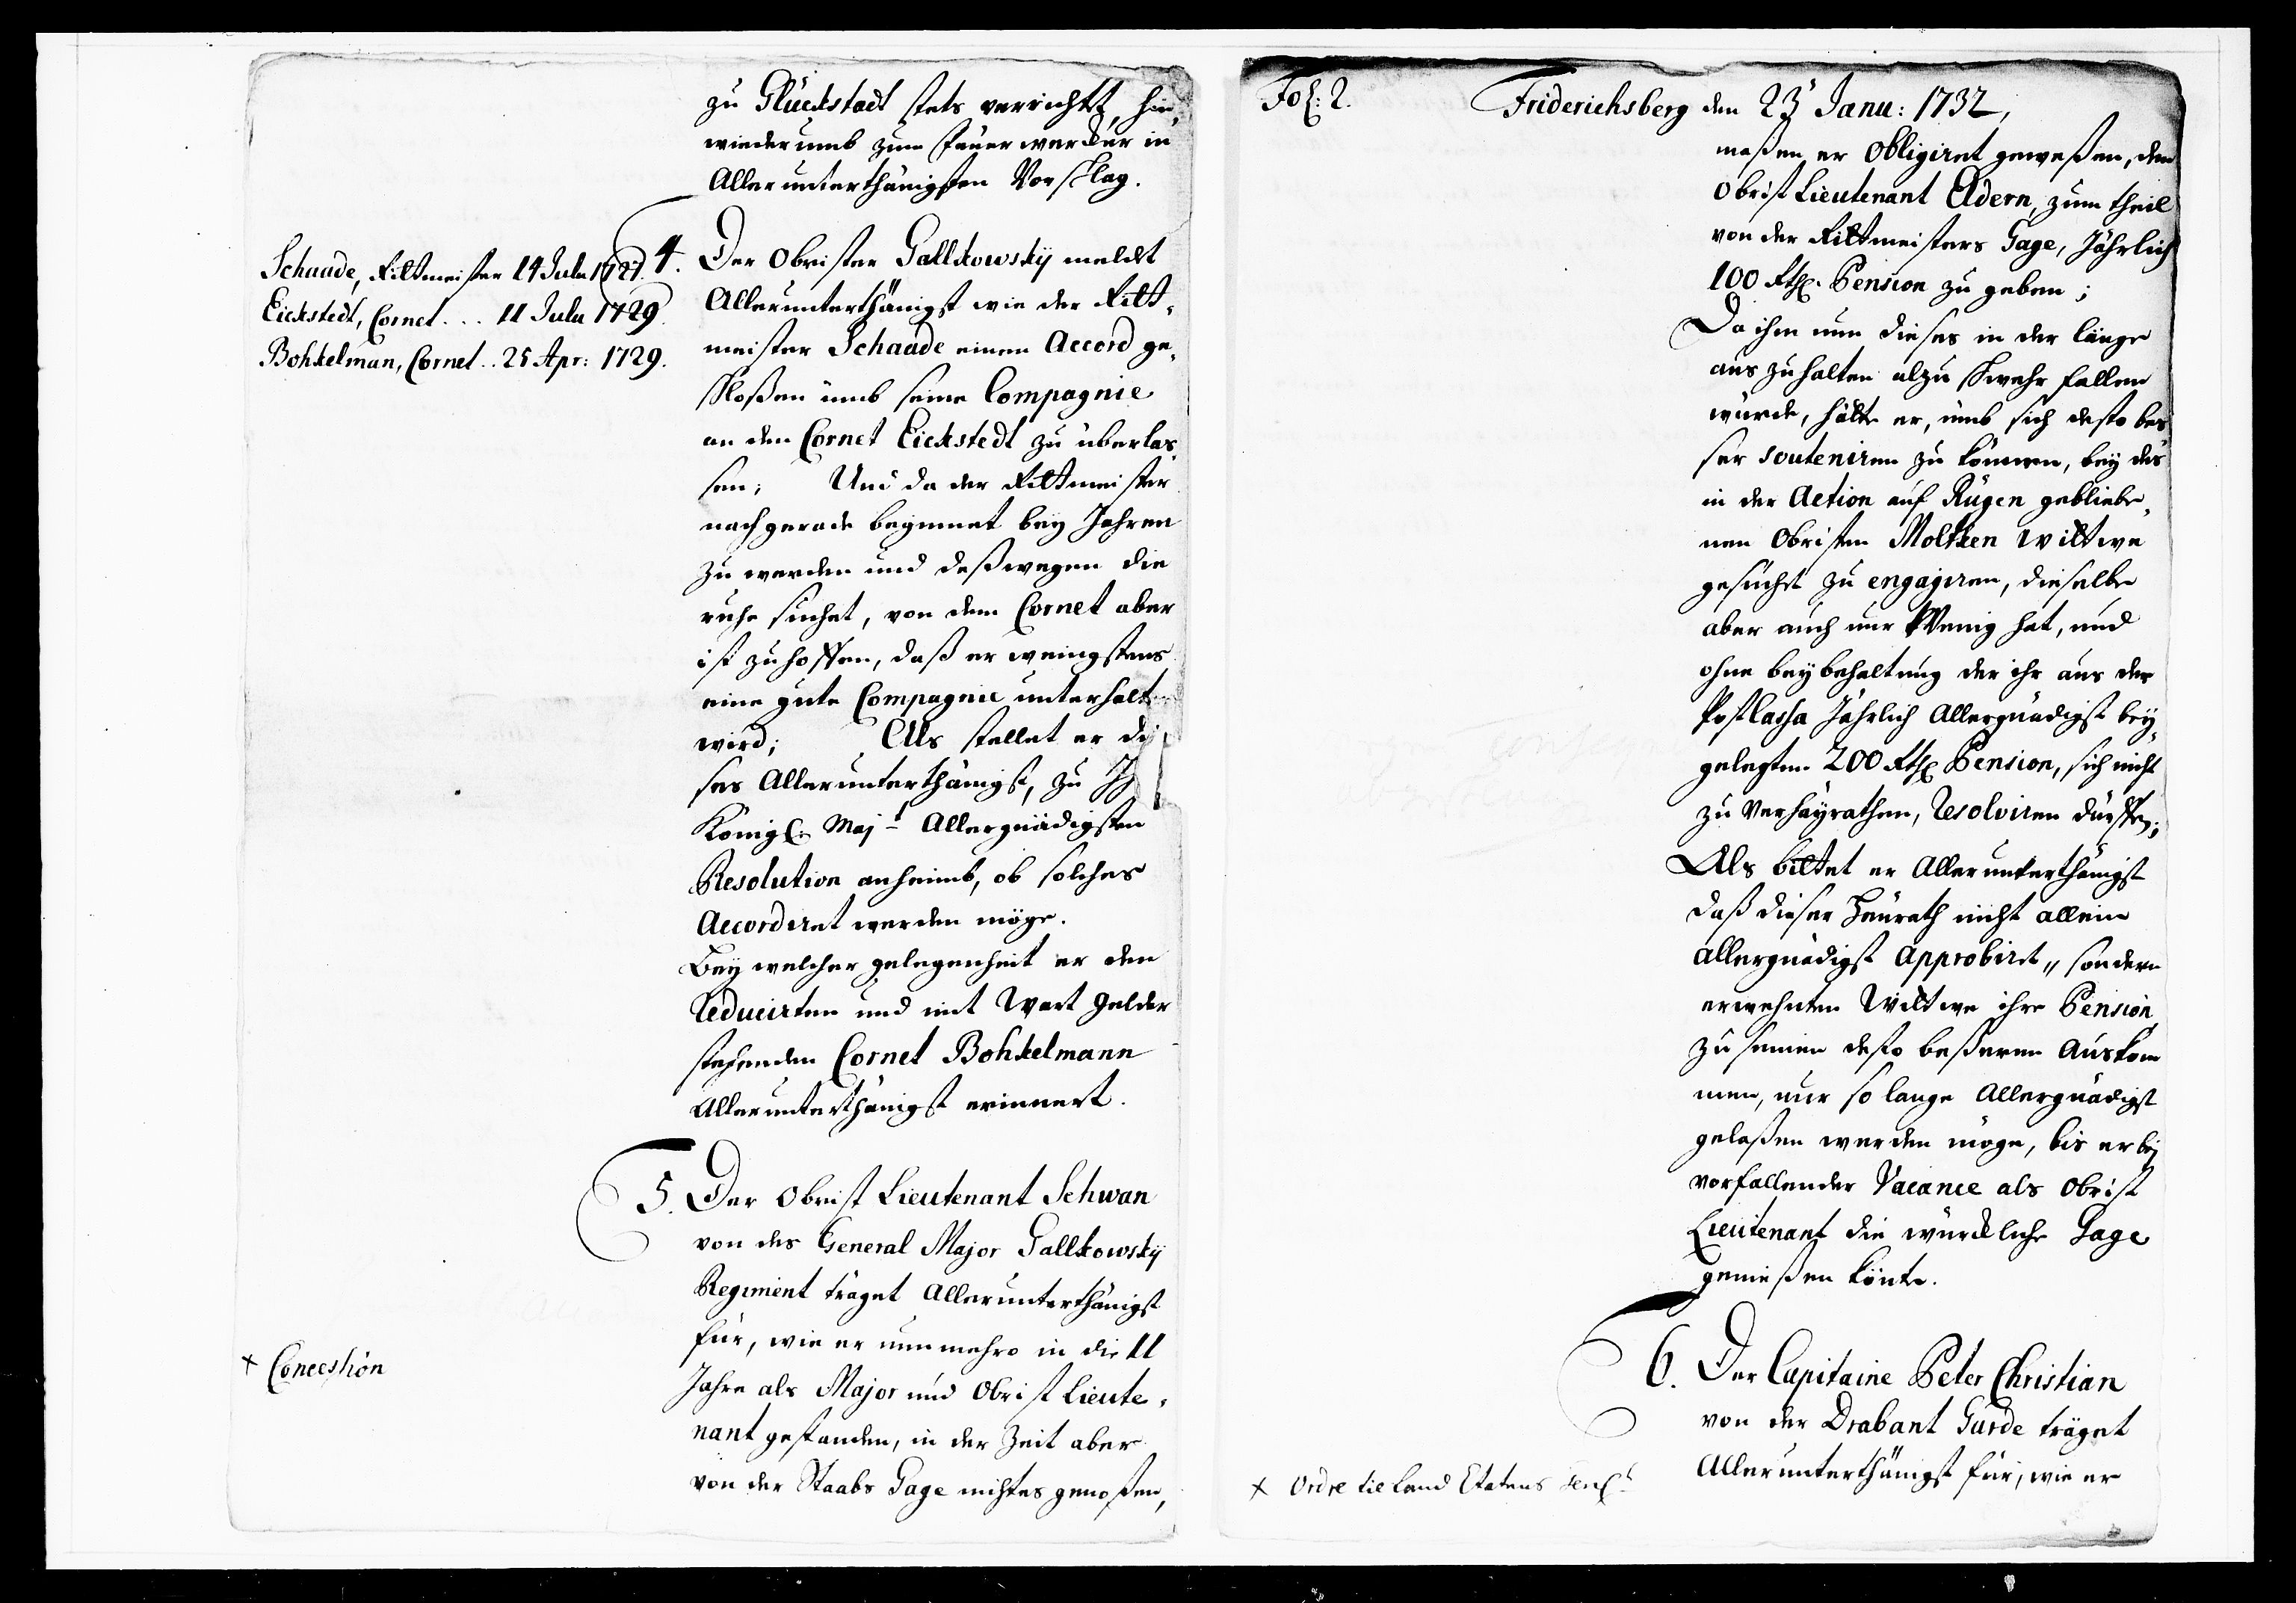 zu Glückstadt stets verrichtt, hin¬
wiederumb zum Feuerwercker in
Allerunterthänigsten Vorschlag.
Schaade, Rittmeister 14 Julu 1727.
Eickstedt, Cornet... 11 Julu 1729.
Bohkelman, Cornet.. 25 Apr: 1729.
4. Der Obrister Gallkowsky meldt
Allerunterthänigst wie der Ritt¬
meister Schaade einen Accord ge¬
schloßen umb seine Compagnie
an den Cornet Eickstedt zu überlas¬
sen; Und da der Rittmeister
nachgerade beginnet bey Jahren
zu werden und deßwegen die
ruhe suchet, von dem Cornet aber
ist zu hoffen, daß er wenigstens
eine gute Compagnie unterhalten
wird; Als stellet er di¬
ses Allerunterthänigst, zu Ih
Königl: Maj:t Allergnädigsten
Resolution anheimb, ob solches
Accordiret werden möge.
Bey welcher gelegenheit er den
Reducirten und mit Wart gelder
stehenden Cornet Bohkelmann
Allerunterthänigst erinnert.
5. Der Obrist Lieutenant Schwan
von des General Major Gallkowsky
Regiment träget Allerunterthänigst
für, wie er nunmehro in die 11
Jahre als Major und Obrist Lieute¬
nant gestanden, in der Zeit aber
von der Staabs Gage nichtes genoßen,
+ Concession
Fol: 2.
Friderichsberg den 23' Janu: 1732,
maßen er Obligiret geweßen, dem
Obrist Lieutenant Eldern, zum theil
von der Rittmeisters Gage, Jährlich
100 Rthl. Pension zu geben;
Da ihm nun dieses in der länge
aus zu halten alzu schwehr fallen
würde, hätte er, umb sich desto bes
ser souteniren zu können, bey des
in der Action auf Rügen gebliebe¬
nen Obristen Moltken Wittwe
gesucht zu engagiren, dieselbe
aber auch nur Wenig hat, und
ohne beybehaltung der ihr aus der
Post Cassa Jährlich Allergnädigst bey¬
gelegten 200 Rthl Pension, sich nicht
zu Verheyrathen, Resolviren dürffe;
Als bittet er Allerunterthänigst
daß dieser Heurath nicht allein
allergnädigst Approbiret, sondern
erwehnten Wittwe ihre Pension
zu seinen desto beßeren Auskom
men, nur so lange Allergnädigst
gelaßen werden möge, bis er bey
vorfallender Vacance als Obrist
Lieutenant die würckliche Gage
genießen könte.
6. Der Capitaine Peter Christian
von der Drabant Garde träget
Allerunterthänigst für, wie er
+ Ordre til Land Etatens